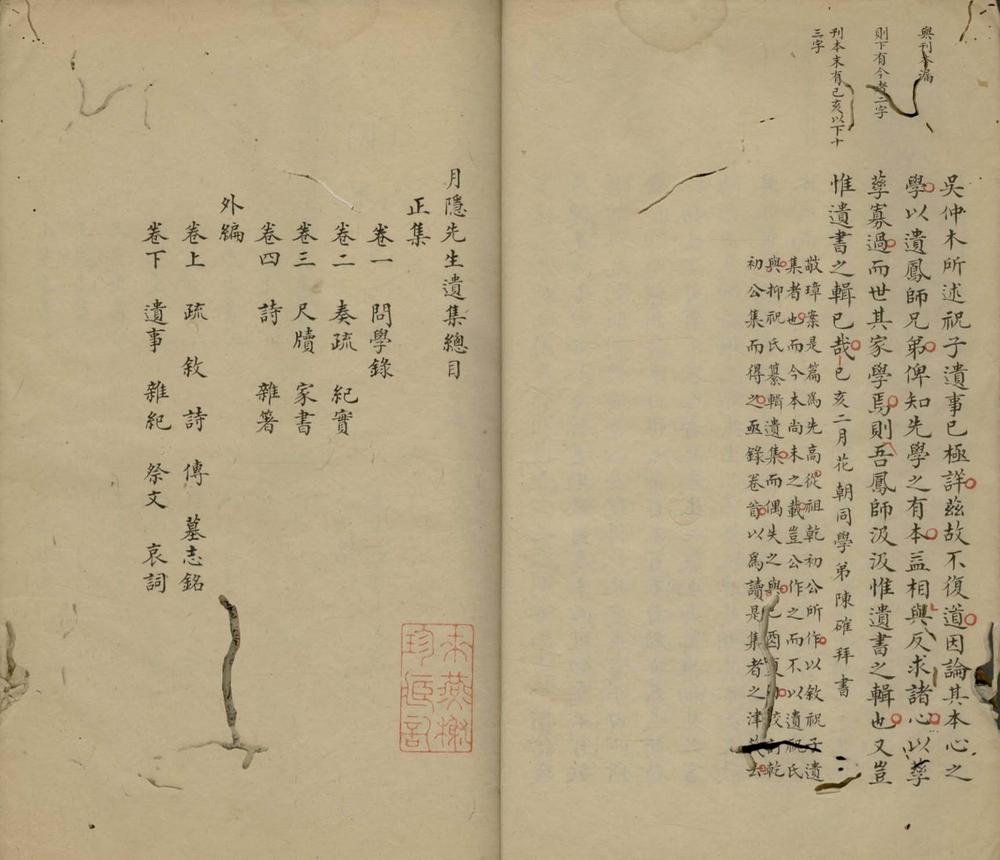 與刊本漏
則下有今考二字
刊本末有己亥以下十
三字
吳仲木所述祝子遺事已極詳茲故不復道因論其本心之
學以遺鳳師兄弟俾知先學之有本益相與反求諸心以孳
孳寡過而世其家學焉則吾鳳師汲汲惟遺書之輯也又豈
惟遺書之輯已哉己亥二月花朝同學弟陳確拜書
敬璋案是篇為先高從祖乾初公所作以敘祝子遺
集者也而今本尚未之載豈公作之而不以遺祝氏
與抑祝氏纂輯遺集而偶失之與己酉夏校乾
初公集而得之亟錄卷首以為讀是集者之津云
月隱先生遺集總目
正集
卷一 問學錄
卷二 奏疏 紀實
卷三 尺牘 家書
卷四 詩 雜著
外編
卷上 疏 敘 詩 傳 墓志銘
卷下 遺事 雜紀 祭文 哀詞
珍臧記